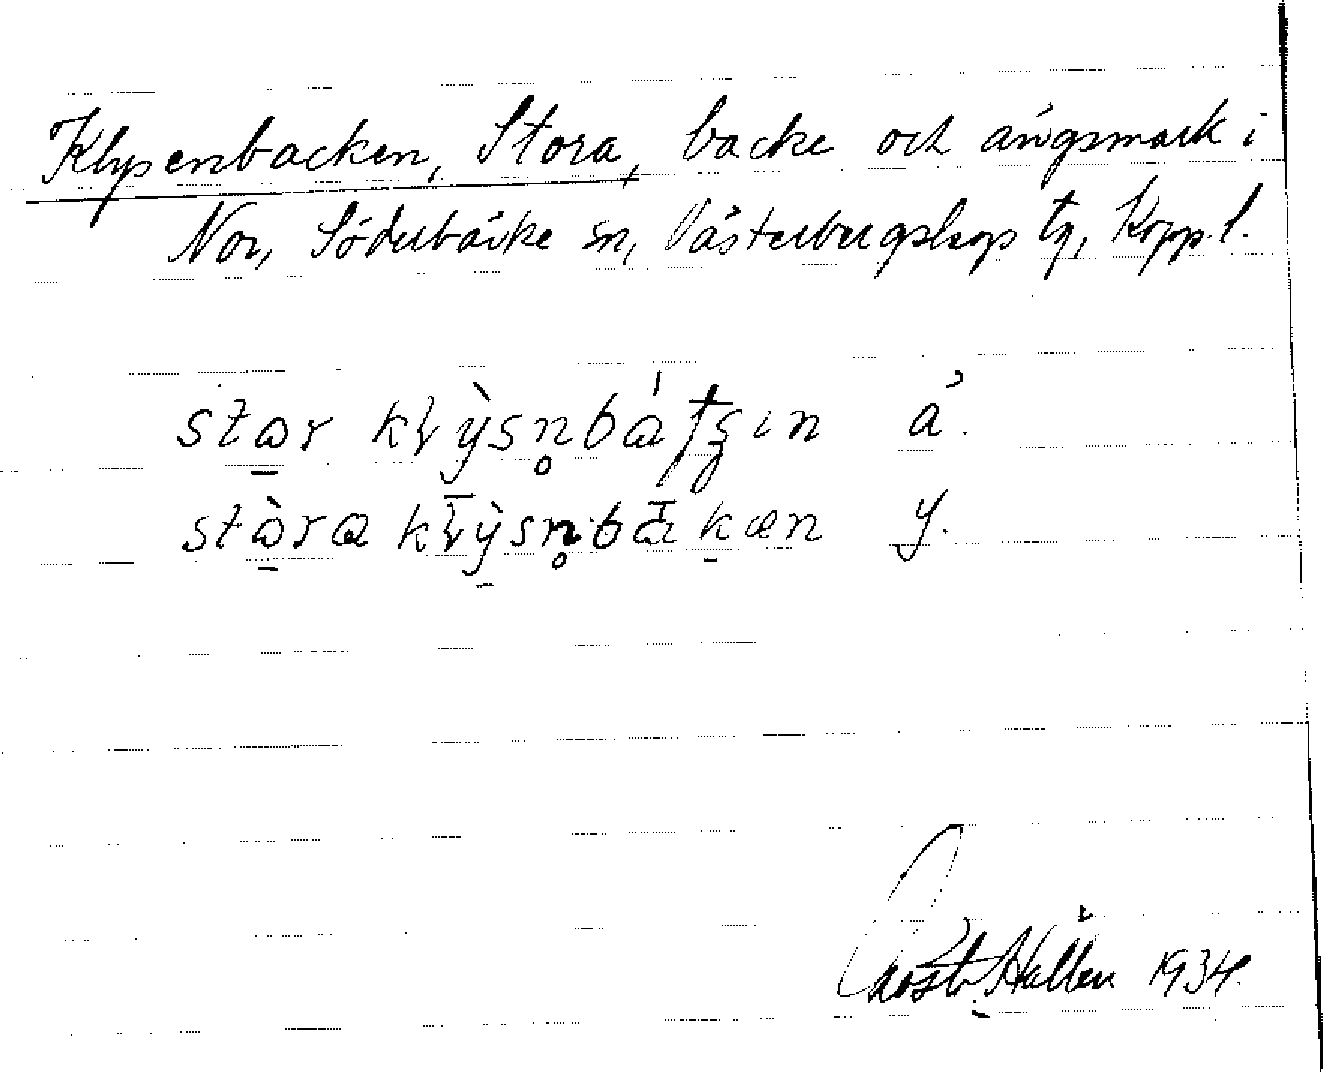 Klysenbacken, Stora, backe och ängsmark i
Nor, Söderbärke sn, Västerbergslags tg, Kopp. l.
star klỳsn̥bátʂın ä.
stàra klỳsn̥bākæn y.
Hallén 1934.